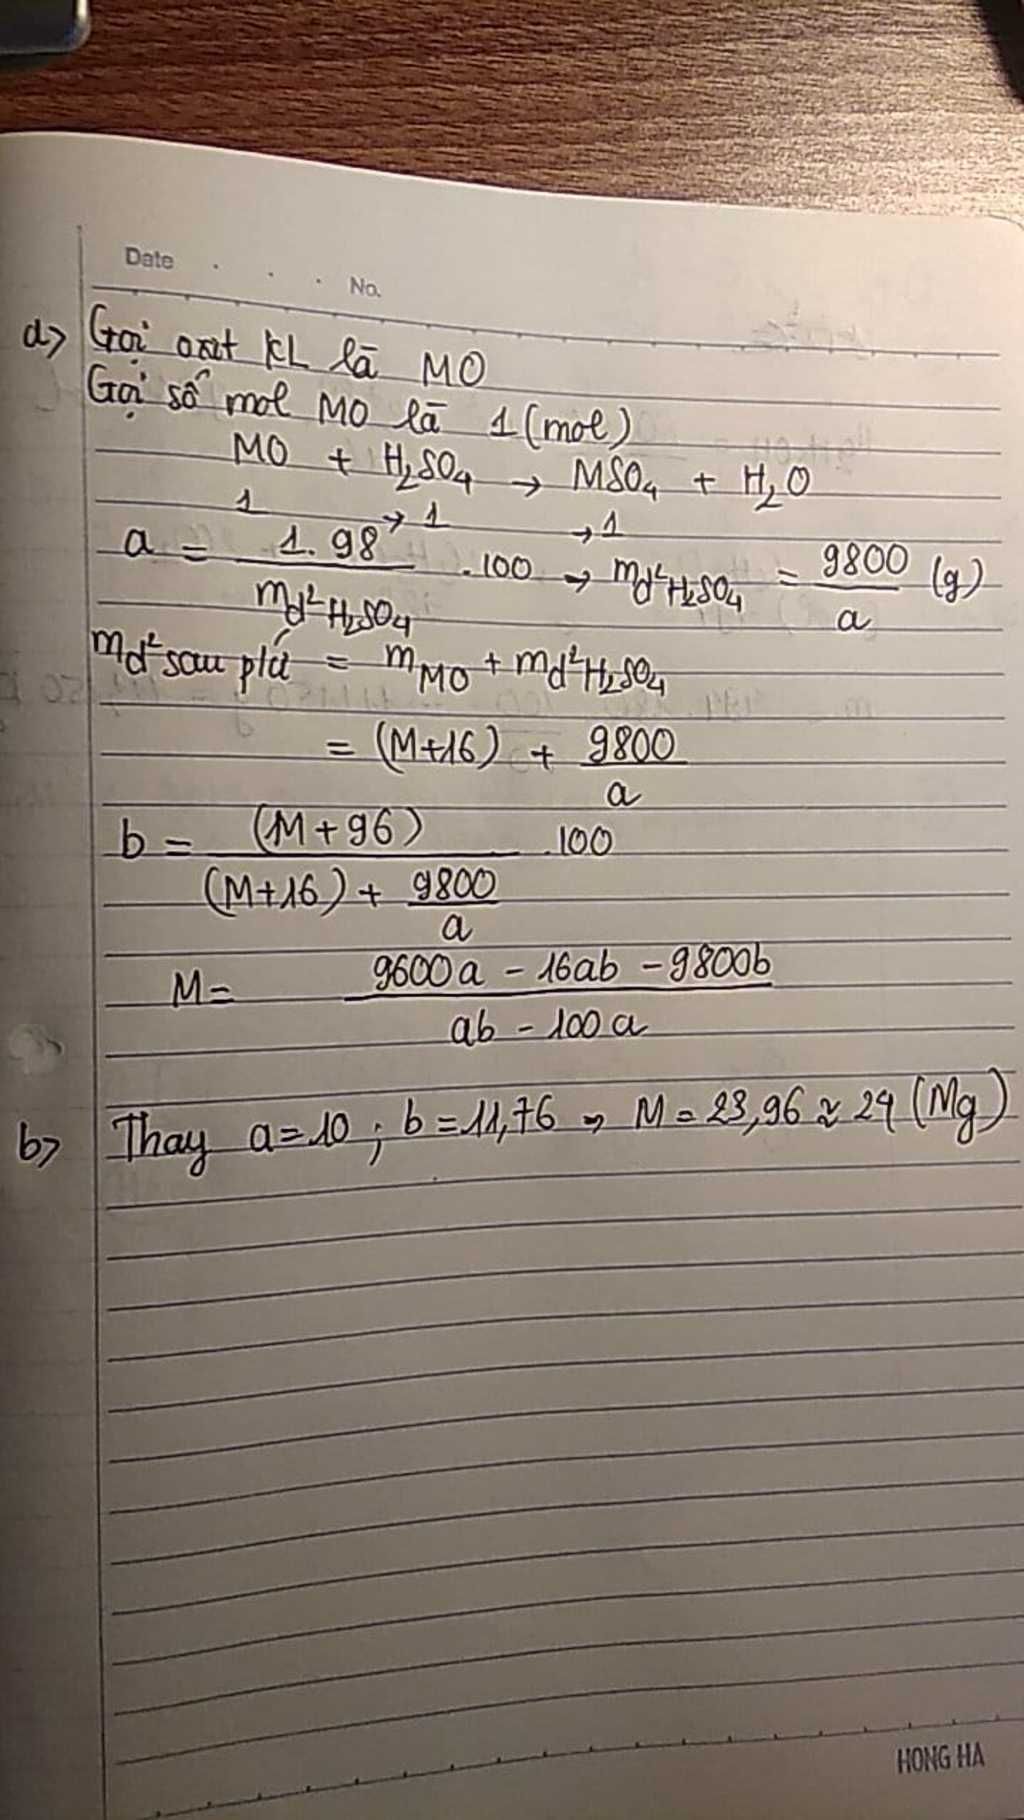 Date . . . No.
a> Gọi oxit KL là MO
Gọi số mol MO là 1 (mol)
MO + H₂SO₄ → MSO₄ + H₂O
1 → 1 → 1
a = 1.98 / md²H₂SO₄ .100 → md²H₂SO₄ = 9800 / a (g)
md² sau pứ = mMO + md²H₂SO₄
= (M+16) + 9800 / a
b = (M+96) / ((M+16) + 9800 / a) .100
M = (9600a - 16ab - 9800b) / (ab - 100a)
b> Thay a=10 ; b=11,76 → M = 23,96 ≈ 24 (Mg)
HONG HA